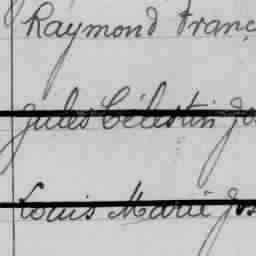 Raymond Franç
Jules Célestin Jo
Louis Marie Jos